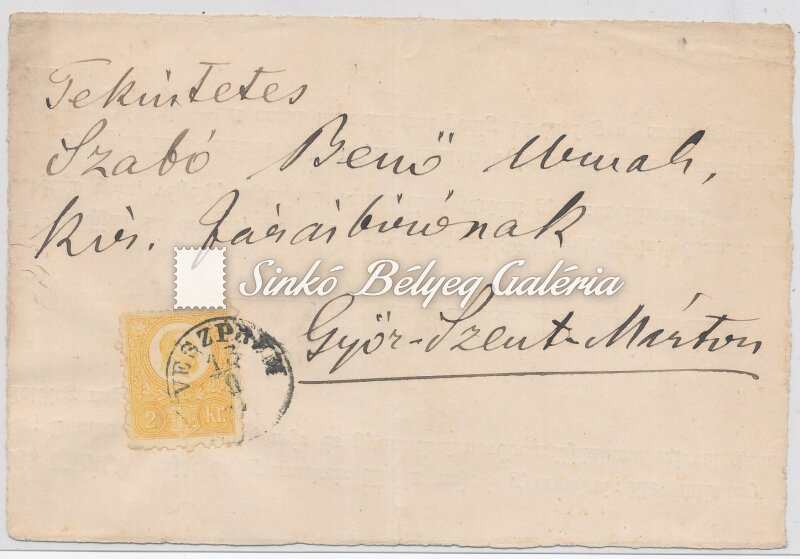 Tekintetes
Szabó Benő Urnak,
kir. Járásbirónak
Sinkó Bélyeg Galéria
Győr-Szent-Márton
VESZPRÉM
13
9
2 Kr.